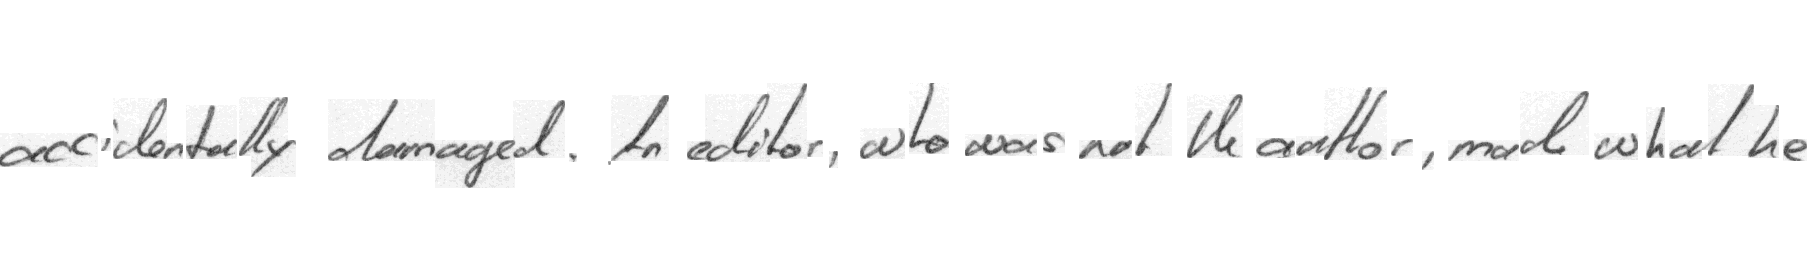 accidentally damaged. An editor, who was not the author, made what he